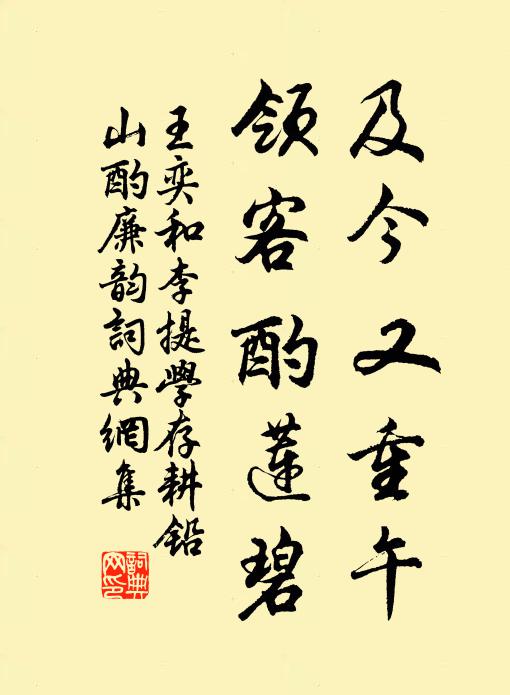 及今又重午
領客酌蓮碧
王奕和李提學存耕鉛
山酌廉韵詞典網集
詞典
网印